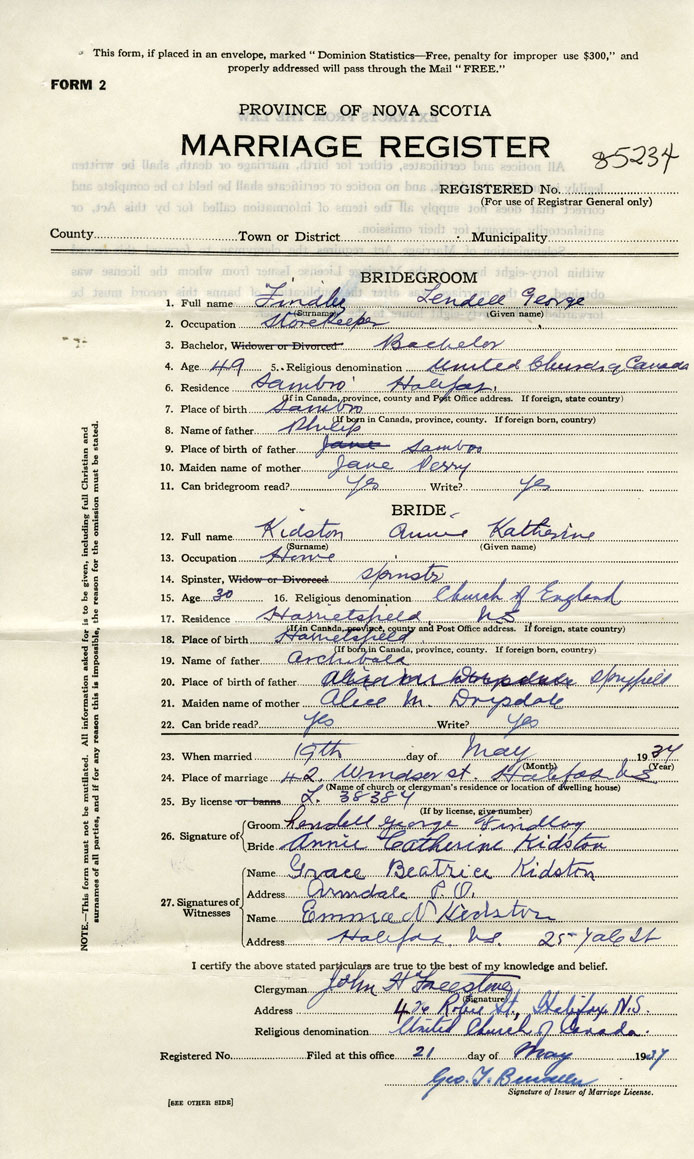 This form, if placed in an envelope, marked "Dominion Statistics—Free, penalty for improper use $300," and
properly addressed will pass through the Mail "FREE."
FORM 2
PROVINCE OF NOVA SCOTIA
MARRIAGE REGISTER
85234
REGISTERED No.
(For use of Registrar General only)
County Town or District Municipality
BRIDEGROOM
1. Full name Findlay Lendell George
(Surname) (Given name)
2. Occupation Storekeeper
3. Bachelor, Widower or Divorced Bachelor
4. Age 49 5. Religious denomination United Church of Canada
6. Residence Sambro Halifax
(If in Canada, province, county and Post Office address. If foreign, state country)
7. Place of birth Sambro
(If born in Canada, province, county. If foreign born, country)
8. Name of father Philip
9. Place of birth of father Jane Sambro
10. Maiden name of mother Jane Perry
11. Can bridegroom read? Yes Write? yes
BRIDE
12. Full name Kidston Annie Katherine
(Surname) (Given name)
13. Occupation Home
14. Spinster, Widow or Divorced Spinster
15. Age 30 16. Religious denomination Church of England
17. Residence Harrietsfield NS
(If in Canada, province, county and Post Office address. If foreign, state country)
18. Place of birth Harrietsfield
(If born in Canada, province, county. If foreign born, country)
19. Name of father Archibald
20. Place of birth of father Spryfield
21. Maiden name of mother Alice M. Drysdale
22. Can bride read? Yes Write? Yes
23. When married 19th day of May 19
(Month) (Year)
24. Place of marriage 42 Windsor St. Halifax NS
(Name of church or clergyman's residence or location of dwelling house)
25. By license or banns L. 38384
(If by license, give number)
26. Signature of
Groom Lendell George Findlay
Bride Annie Catherine Kidston
27. Signatures of Witnesses
Name Grace Beatrice Kidston
Address Armdale P.O.
Name Emma Kidston
Address Halifax NS. 25 Yale St
I certify the above stated particulars are true to the best of my knowledge and belief.
Clergyman John H Freestone
(Signature)
Address Robie St., Halifax N.S.
Religious denomination United Church of Canada.
Registered No. Filed at this office 21 day of May 19
Geo. T.
Signature of Issuer of Marriage License.
[SEE OTHER SIDE]
NOTE.—This form must not be mutilated. All information asked for is to be given, including full Christian and
surnames of all parties, and if for any reason this is impossible, the reason for the omission must be stated.